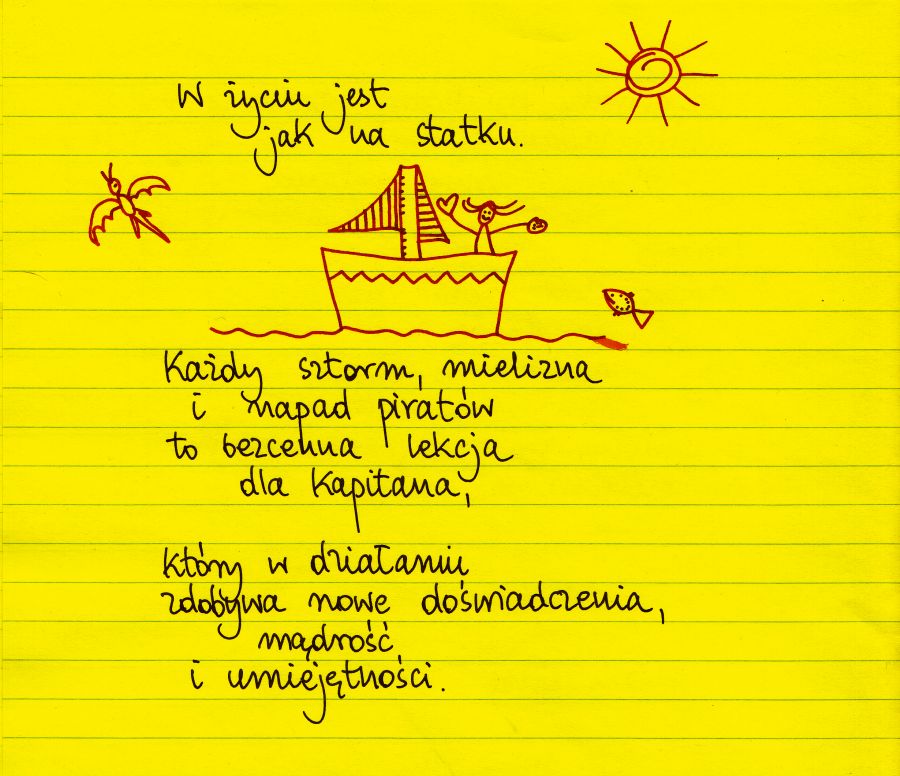 W życiu jest
jak na statku.
Każdy sztorm, mielizna
i napad piratów
to bezcenna lekcja
dla kapitana,
który w działaniu
zdobywa nowe doświadczenia,
mądrość
i umiejętności.